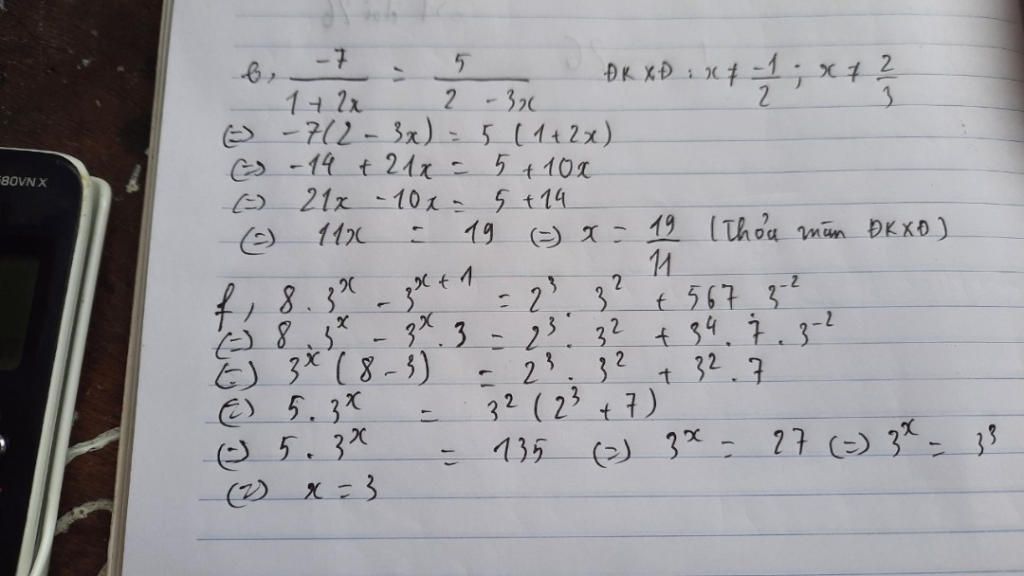 e, -7/(1+2x) = 5/(2-3x) ĐKXĐ: x ≠ -1/2; x ≠ 2/3
(=) -7(2-3x) = 5(1+2x)
(=) -14 + 21x = 5 + 10x
(=) 21x - 10x = 5 + 14
(=) 11x = 19 (=) x = 19/11 (Thỏa mãn ĐKXĐ)
f, 8.3^x - 3^(x+1) = 2^3.3^2 + 567.3^-2
(=) 8.3^x - 3^x.3 = 2^3.3^2 + 3^4.7.3^-2
(=) 3^x(8-3) = 2^3.3^2 + 3^2.7
(=) 5.3^x = 3^2(2^3+7)
(=) 5.3^x = 135 (=) 3^x = 27 (=) 3^x = 3^3
(=) x = 3
580VN X